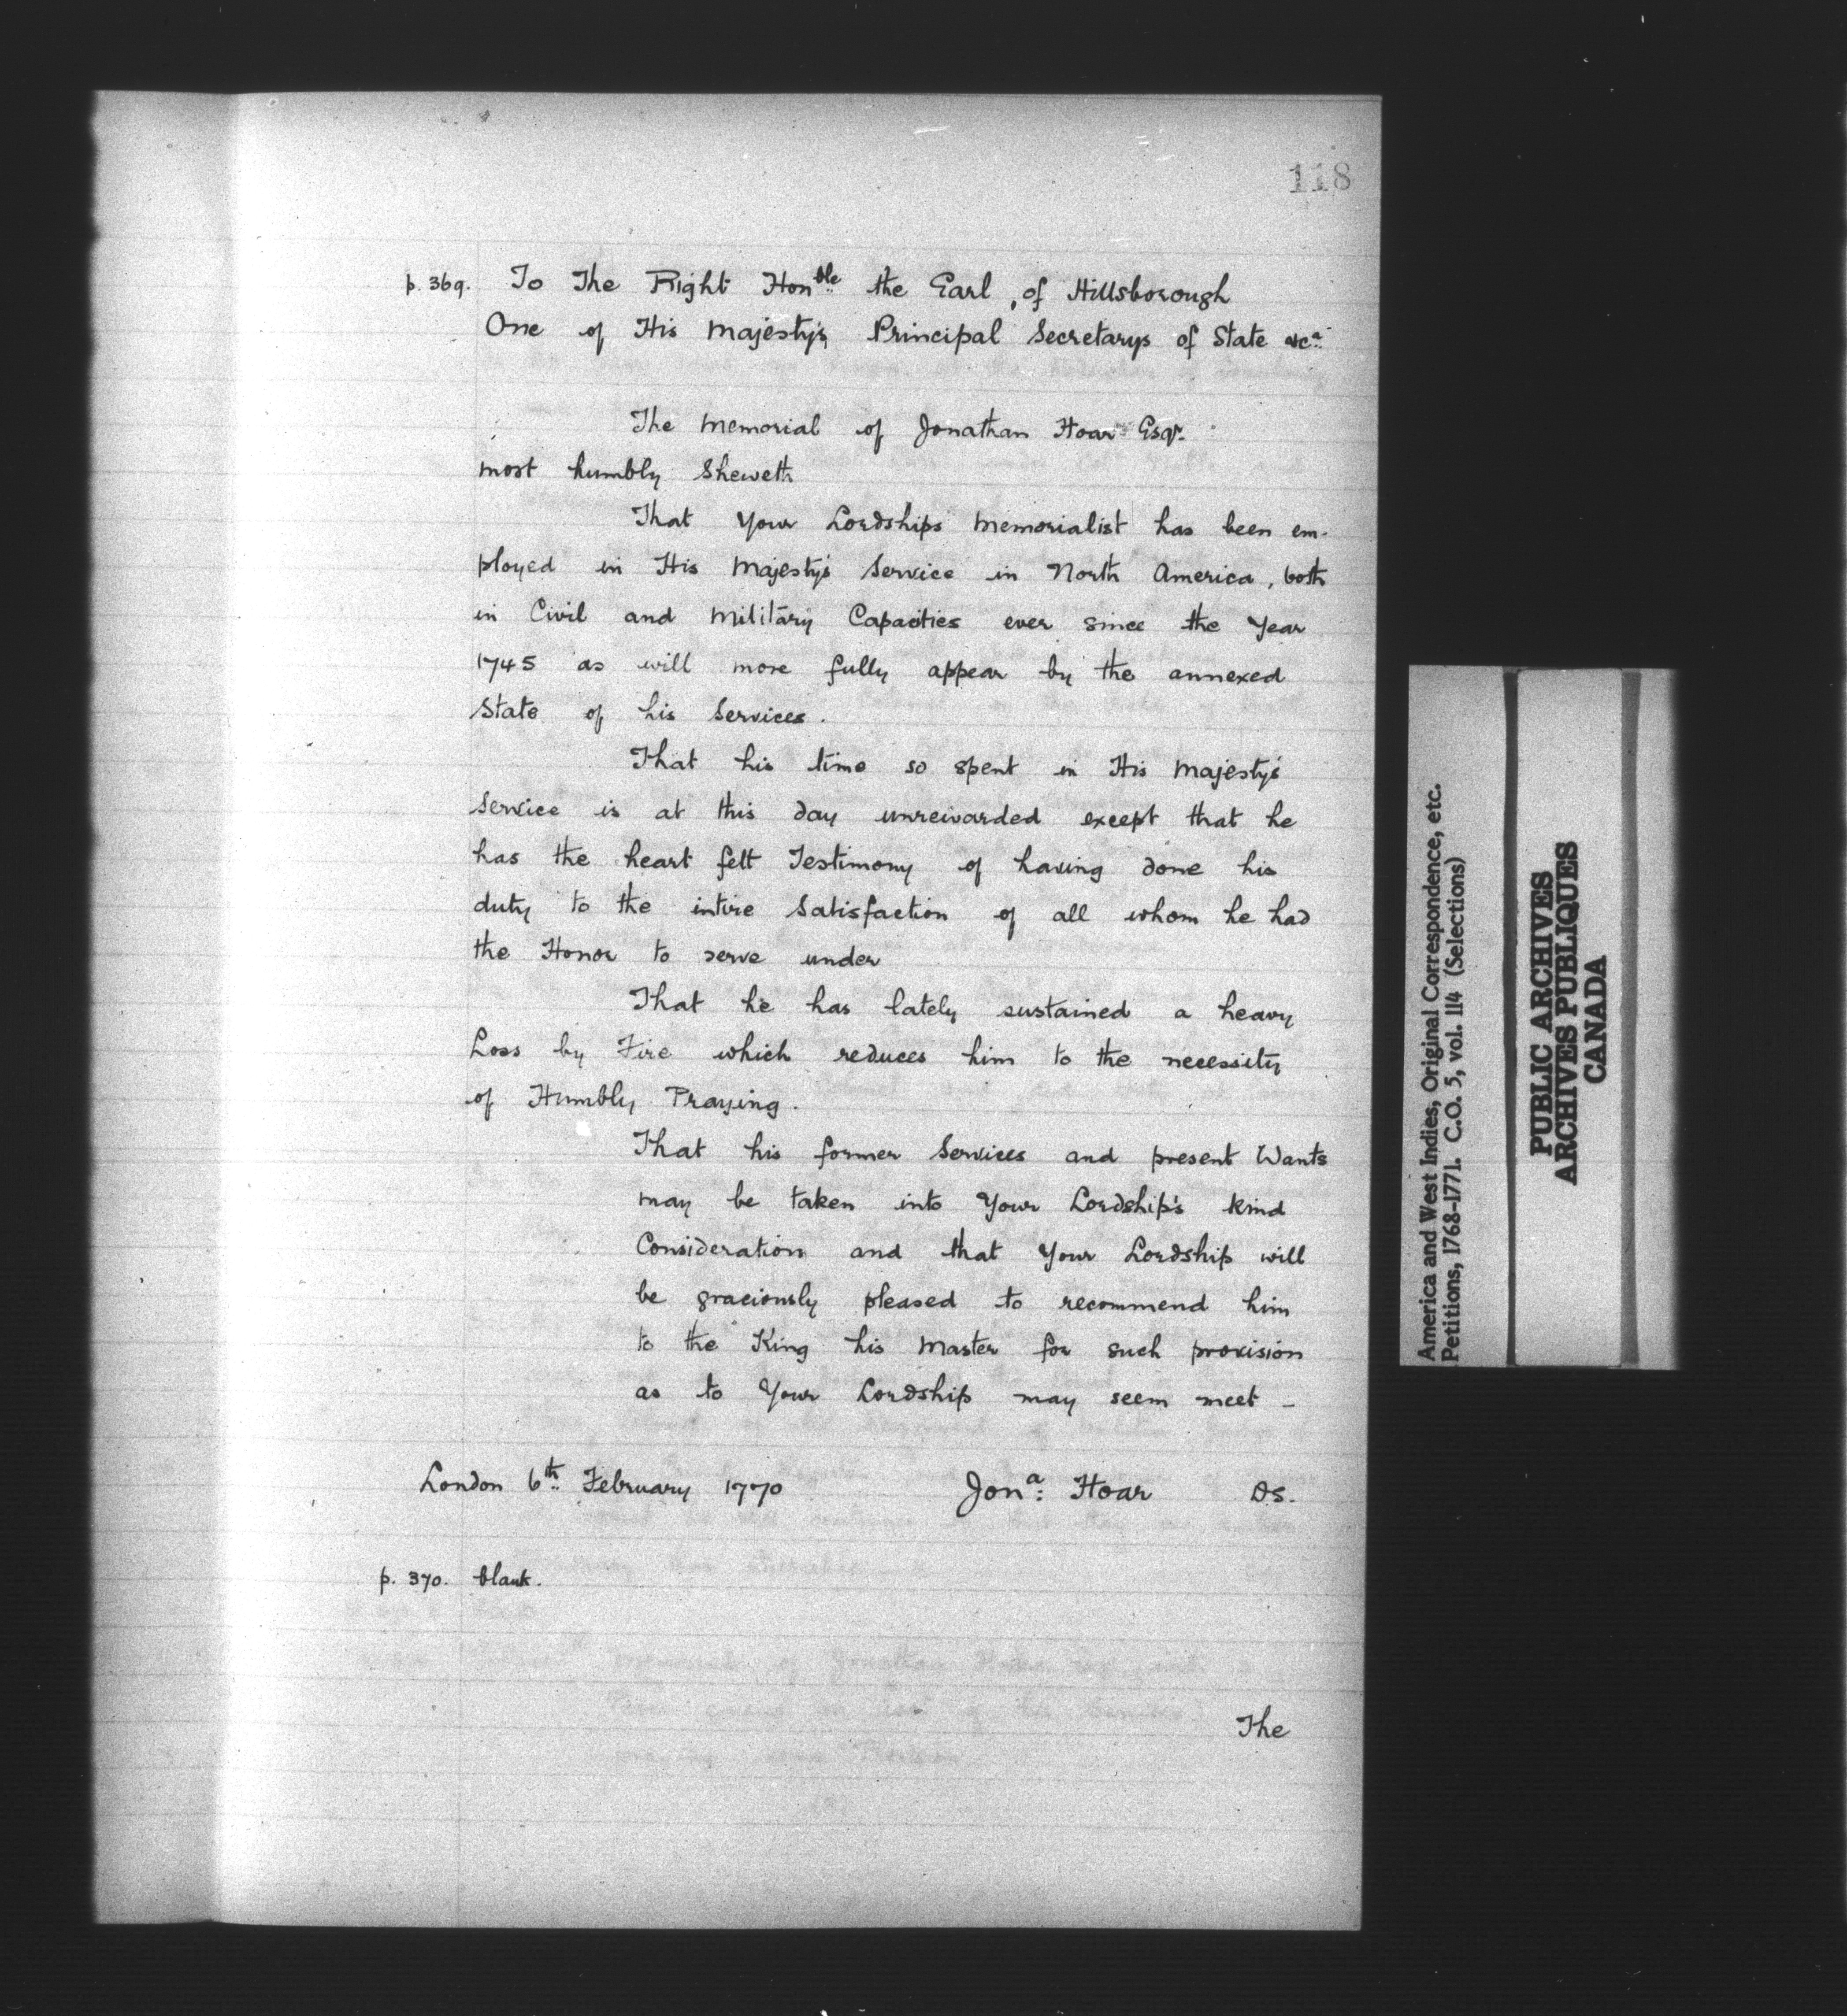 118
p. 369. To The Right Honble the Earl of Hillsborough
One of His Majesty's Principal Secretarys of State &ca
The Memorial of Jonathan Hoar Esqr.
most humbly Sheweth
That Your Lordships Memorialist has been em-
ployed in His Majesty's Service in North America, both
in Civil and Military Capacities ever since the Year
1745 as will more fully appear by the annexed
State of his Services.
That his time so spent in His Majesty's
Service is at this day unrewarded except that he
has the heart felt Testimony of having done his
duty to the intire Satisfaction of all whom he had
the Honor to serve under
That he has lately sustained a heavy
Loss by Fire which reduces him to the necessity
of Humbly Praying.
That his former Services and present Wants
may be taken into Your Lordship's kind
Consideration and that Your Lordship will
be graciously pleased to recommend him
to the King his Master for such provision
as to Your Lordship may seem meet -
London 6th February 1770 Jona: Hoar DS.
p. 370. blank.
The
America and West Indies, Original Correspondence, etc.
Petitions, 1768-1771. C.O. 5, vol. 114 (Selections)
PUBLIC ARCHIVES
ARCHIVES PUBLIQUES
CANADA